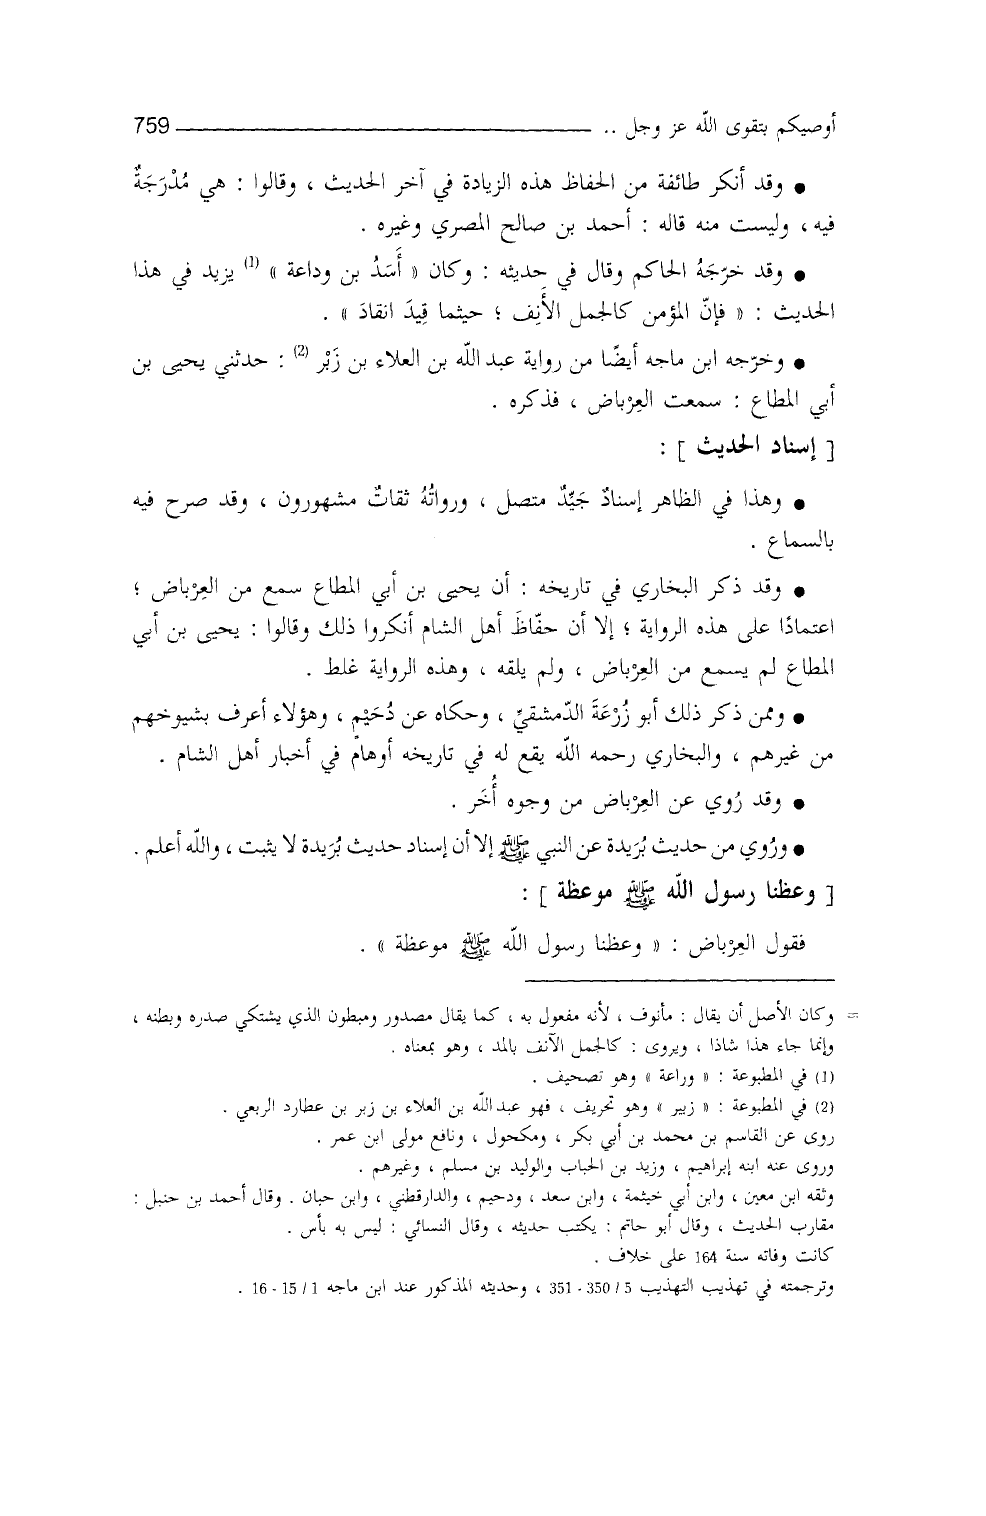 أوصيكم بتقوى اللّه عز وجل .. 759
● وقد أنكر طائفة من الحفاظ هذه الزيادة في آخر الحديث ، وقالوا : هي مُدْرَجَةٌ
فيه ، وليست منه قاله : أحمد بن صالح المصري وغيره .
● وقد خرّجَهُ الحاكم وقال في حديثه : وكان « أَسَدُ بن وداعة » (1) يزيد في هذا
الحديث : « فإنّ المؤمن كالجمل الأَنِف ؛ حيثما قِيدَ انقادَ » .
● وخرّجه ابن ماجه أيضًا من رواية عبد اللّه بن العلاء بن زَبْر (2) : حدثني يحيى بن
أبي المطاع : سمعت العِرْباض ، فذكره .
[ إسناد الحديث ] :
● وهذا في الظاهر إسنادٌ جَيِّدٌ متصل ، ورواتُهُ ثقاتٌ مشهورون ، وقد صرح فيه
بالسماع .
● وقد ذكر البخاري في تاريخه : أن يحيى بن أبي المطاع سمع من العِرْباض ؛
اعتمادًا على هذه الرواية ؛ إلا أن حفّاظَ أهل الشام أنكروا ذلك وقالوا : يحيى بن أبي
المطاع لم يسمع من العِرْباض ، ولم يلقه ، وهذه الرواية غلط .
● وممن ذكر ذلك أبو زُرْعَةَ الدّمشقيّ ، وحكاه عن دُحَيْمٍ ، وهؤلاء أعرف بشيوخهم
من غيرهم ، والبخاري رحمه اللّه يقع له في تاريخه أوهامٌ في أخبار أهل الشام .
● وقد رُوي عن العِرْباض من وجوه أُخَر .
● ورُوي من حديث بُرَيدة عن النبي ﷺ إلا أن إسناد حديث بُرَيدة لا يثبت ، واللّه أعلم .
[ وعظنا رسول اللّه ﷺ موعظة ] :
فقول العِرْباض : « وعظنا رسول اللّه ﷺ موعظة » .
= وكان الأصل أن يقال : مأنوف ، لأنه مفعول به ، كما يقال مصدور ومبطون الذي يشتكي صدره وبطنه ،
وإنما جاء هذا شاذا ، ويروى : كالجمل الآنف بالمد ، وهو بمعناه .
(1) في المطبوعة : « وراعة » وهو تصحيف .
(2) في المطبوعة : « زبير » وهو تحريف ، فهو عبد اللّه بن العلاء بن زبر بن عطارد الربعي .
روى عن القاسم بن محمد بن أبي بكر ، ومكحول ، ونافع مولى ابن عمر .
وروى عنه ابنه إبراهيم ، وزيد بن الحباب والوليد بن مسلم ، وغيرهم .
وثقه ابن معين ، وابن أبي خيثمة ، وابن سعد ، ودحيم ، والدارقطني ، وابن حبان . وقال أحمد بن حنبل :
مقارب الحديث ، وقال أبو حاتم : يكتب حديثه ، وقال النسائي : ليس به بأس .
كانت وفاته سنة 164 على خلاف .
وترجمته في تهذيب التهذيب 5 / 350 - 351 ، وحديثه المذكور عند ابن ماجه 1 / 15 - 16 .